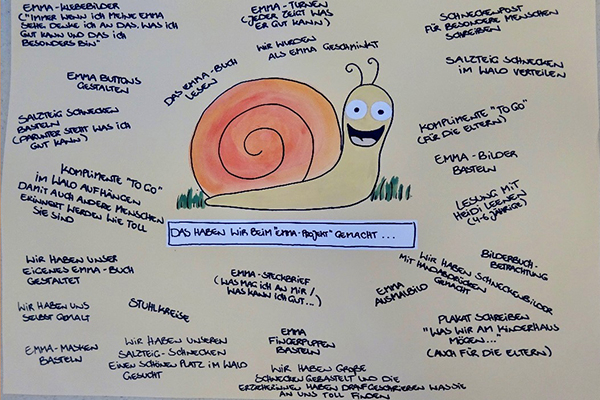 EMMA-KLEBEBILDER
("IMMER WENN ICH MEINE EMMA
SEHE, DENKE ICH AN DAS, WAS ICH
GUT KANN UND DAS ICH
BESONDERS BIN"
EMMA-TURNEN
(JEDER ZEIGT WAS
ER GUT KANN)
SCHNECKENPOST
FÜR BESONDERE MENSCHEN
SCHREIBEN
WIR WURDEN
ALS EMMA GESCHMINKT
SALZTEIG SCHNECKEN
IM WALD VERTEILEN
EMMA BUTTONS
GESTALTEN
DAS EMMA-BUCH
LESEN
SALZTEIG SCHNECKEN
BASTELN
(DARUNTER STEHT WAS ICH
GUT KANN)
KOMPLIMENTE "TO GO"
(FÜR DIE ELTERN)
EMMA-BILDER
BASTELN
KOMPLIMENTE "TO GO"
IM WALD AUFHÄNGEN
DAMIT AUCH ANDERE MENSCHEN
ERINNERT WERDEN WIE TOLL
SIE SIND
LESUNG MIT
HEIDI LEENEN
(4-6 JÄHRIGE)
DAS HABEN WIR BEIM "EMMA-PROJEKT" GEMACHT...
WIR HABEN UNSER
EIGENES EMMA-BUCH
GESTALTET
EMMA-STECKBRIEF
(WAS MAG ICH AN MIR /
WAS KANN ICH GUT...)
EMMA
AUSMALBILD
WIR HABEN SCHNECKENBILDER
MIT HANDABDRÜCKEN
GEMACHT
BILDERBUCH-
BETRACHTUNG
WIR HABEN UNS
SELBST GEMALT
STUHLKREISE
PLAKAT SCHREIBEN
"WAS WIR AM KINDERHAUS
MÖGEN..."
(AUCH FÜR DIE ELTERN)
EMMA-MASKEN
BASTELN
WIR HABEN UNSEREN
SALZTEIG-SCHNECKEN
EINEN SCHÖNEN PLATZ IM WALD
GESUCHT
EMMA
FINGERPUPPEN
BASTELN
WIR HABEN GROßE
SCHNECKEN GEBASTELT UND DIE
ERZIEHERINNEN HABEN DRAUFGESCHRIEBEN WAS SIE
AN UNS TOLL FINDEN